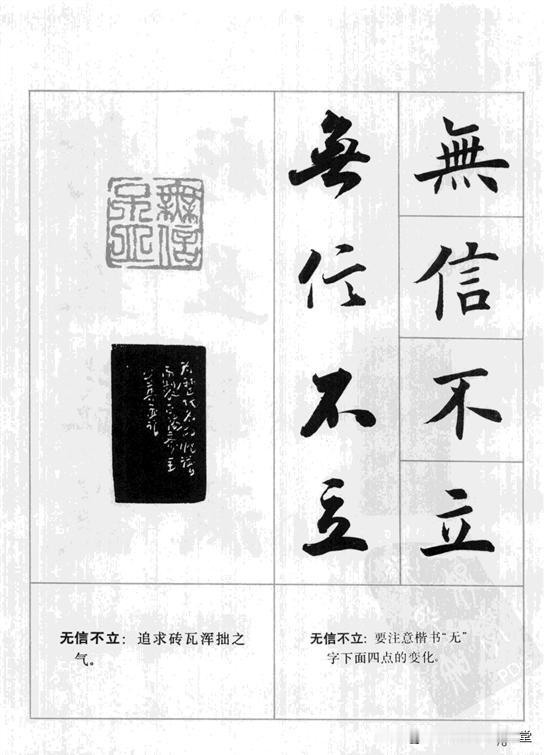 無信不立
無信不立
無信不立
无信不立：追求砖瓦浑拙之
气。
无信不立：要注意楷书“无”
字下面四点的变化。
堂